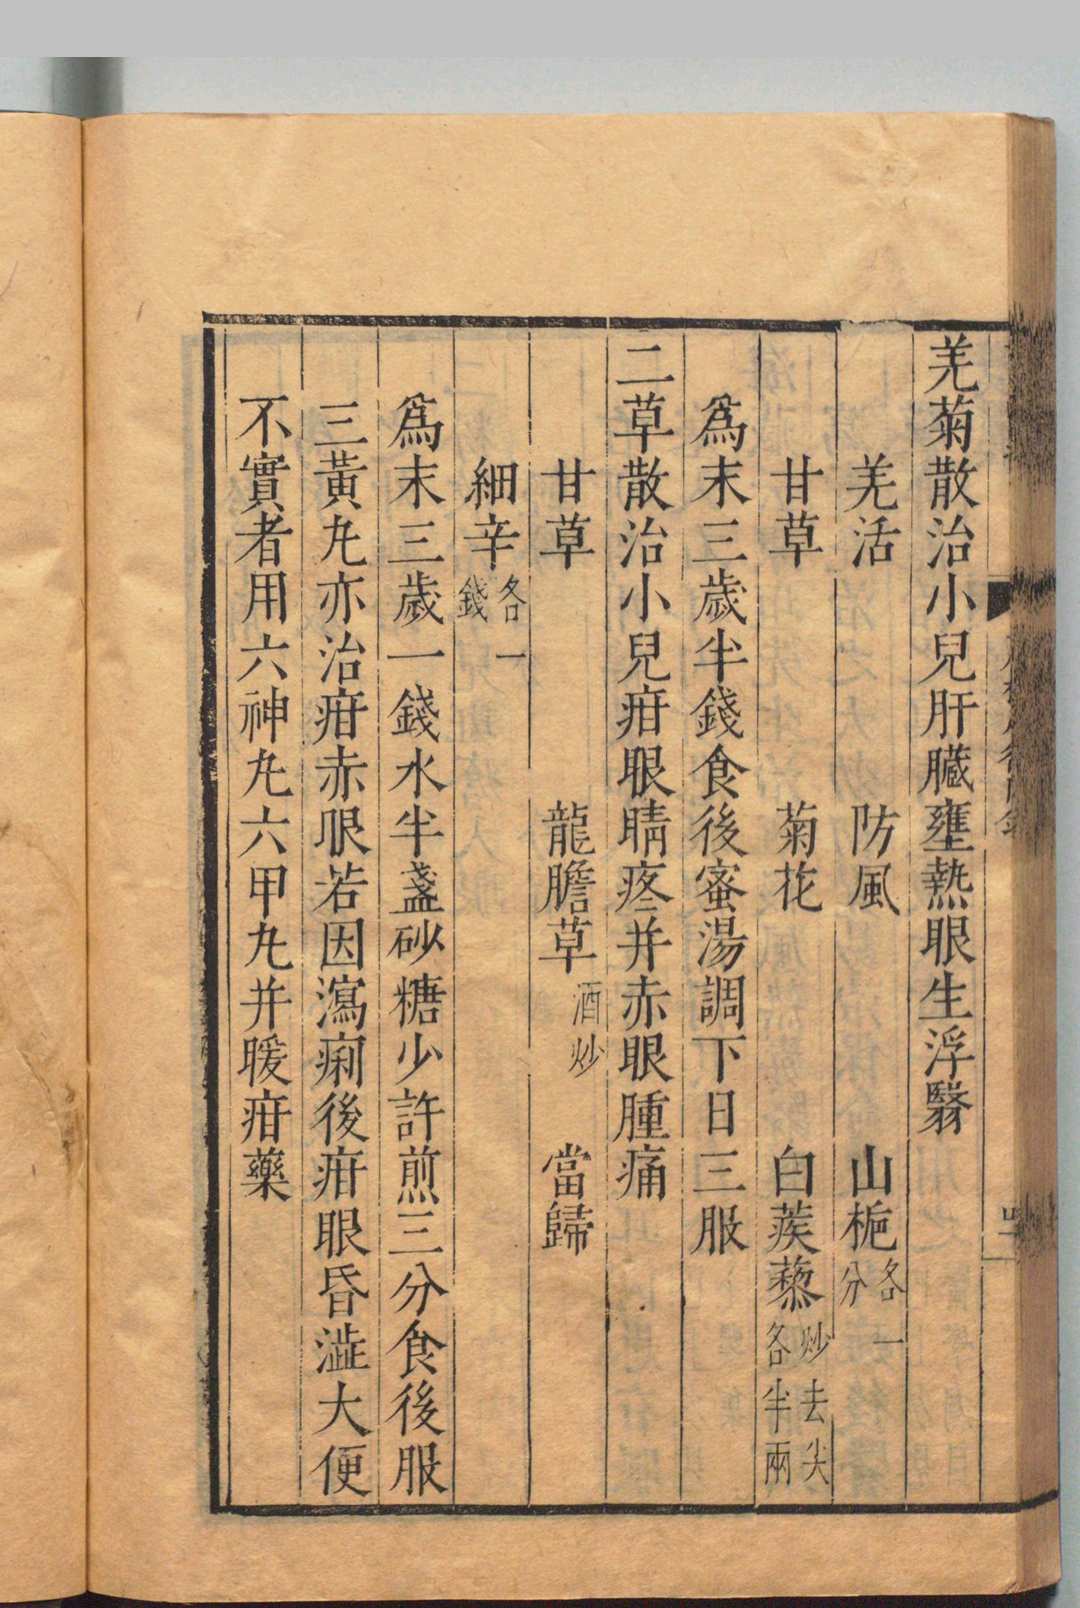 羌菊散治小兒肝臟壅熱眼生浮翳
羌活 防風 山梔各一分
甘草 菊花 白蒺藜炒去尖各半兩
爲末三歲半錢食後蜜湯調下日三服
二草散治小兒疳眼睛疼并赤眼腫痛
甘草 龍膽草酒炒 當歸
細辛各一錢
爲末三歲一錢水半盞砂糖少許煎三分食後服
三黃丸亦治疳赤眼若因瀉痢後疳眼昏澁大便
不實者用六神丸六甲丸并暖疳藥